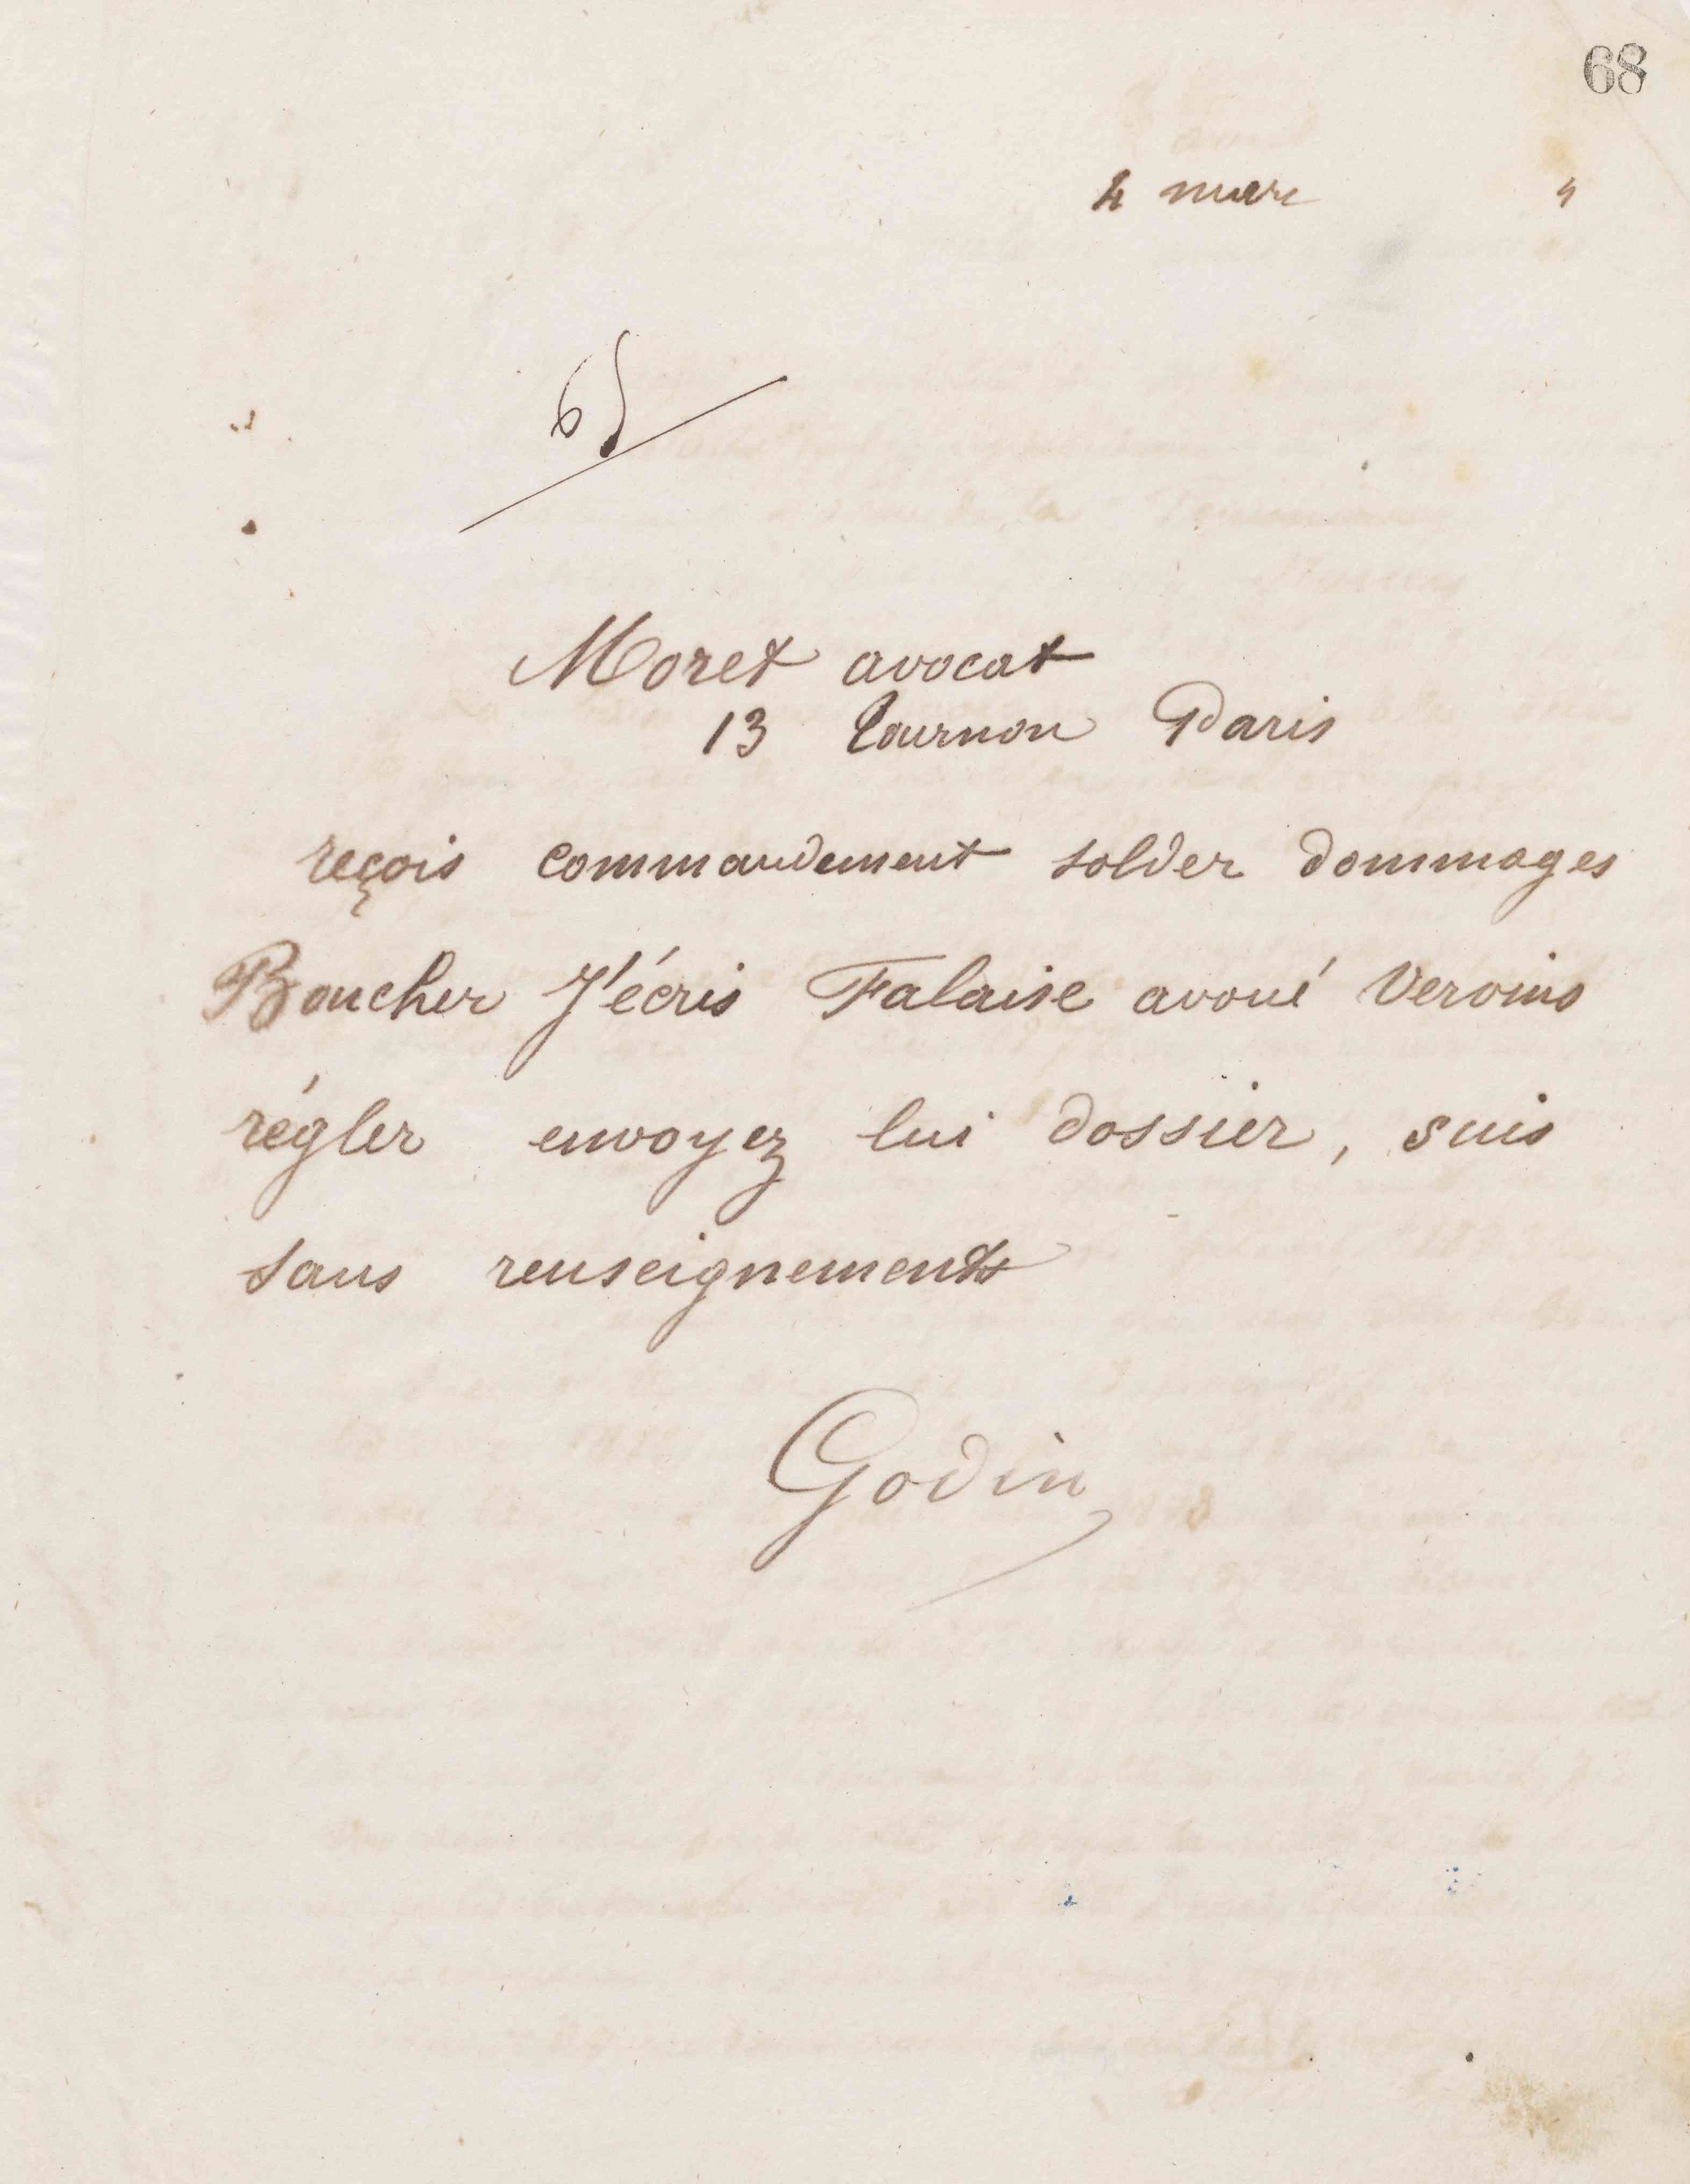 68
4 mars 4
65
Moret avocat
13 Tournon Paris
reçois commandement solder dommages
Boucher J'écris Falaise avoué Vervins
régler envoyez lui dossier, suis
sans renseignements
Godin